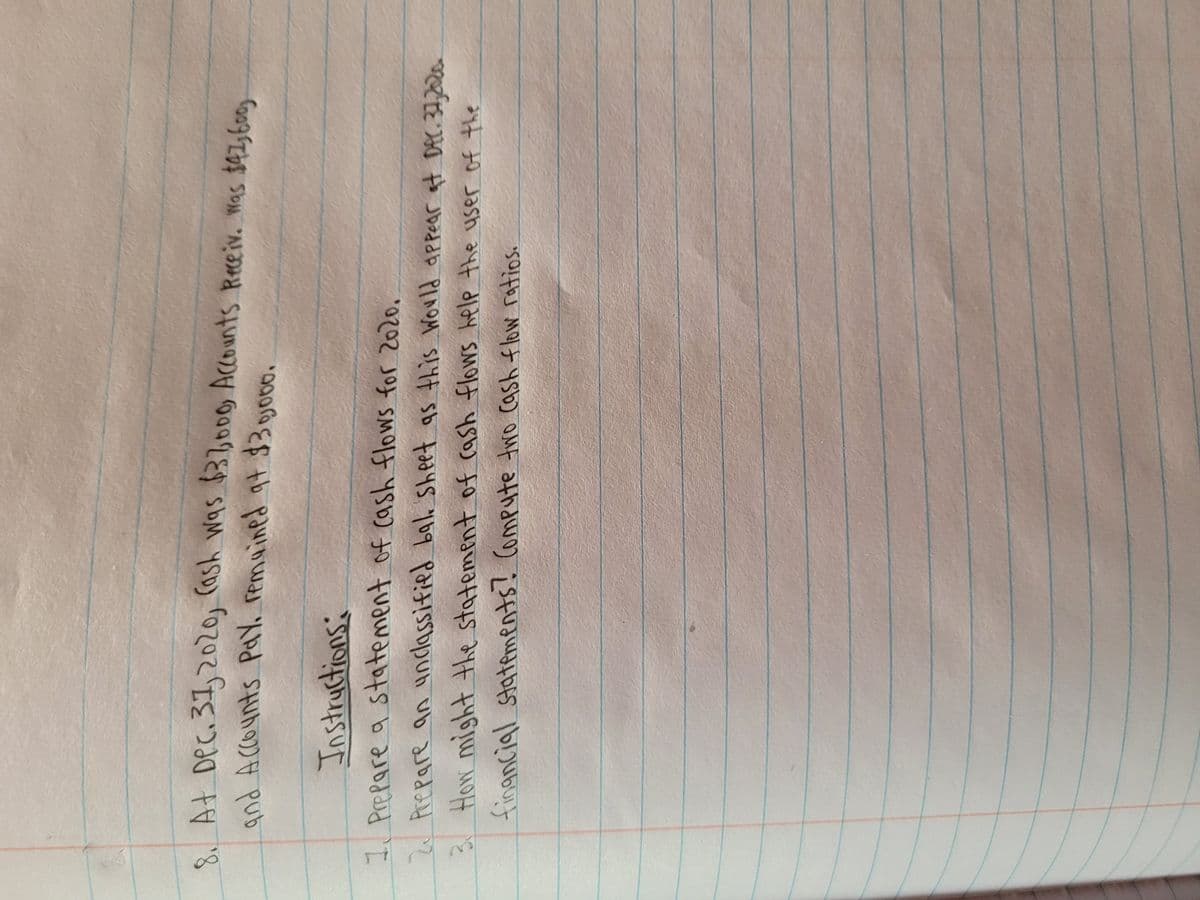 8. At Dec. 31, 2020, Cash was $37,000, Accounts Receiv. was $41,600,
and Accounts Pay. remained at $30,000.
Instructions:
1. Prepare a statement of cash flows for 2020.
2. Prepare an unclassified bal. sheet as this would appear at Dec. 31, 2020.
3. How might the statement of cash flows help the user of the
financial statements? Compute two cash flow ratios.